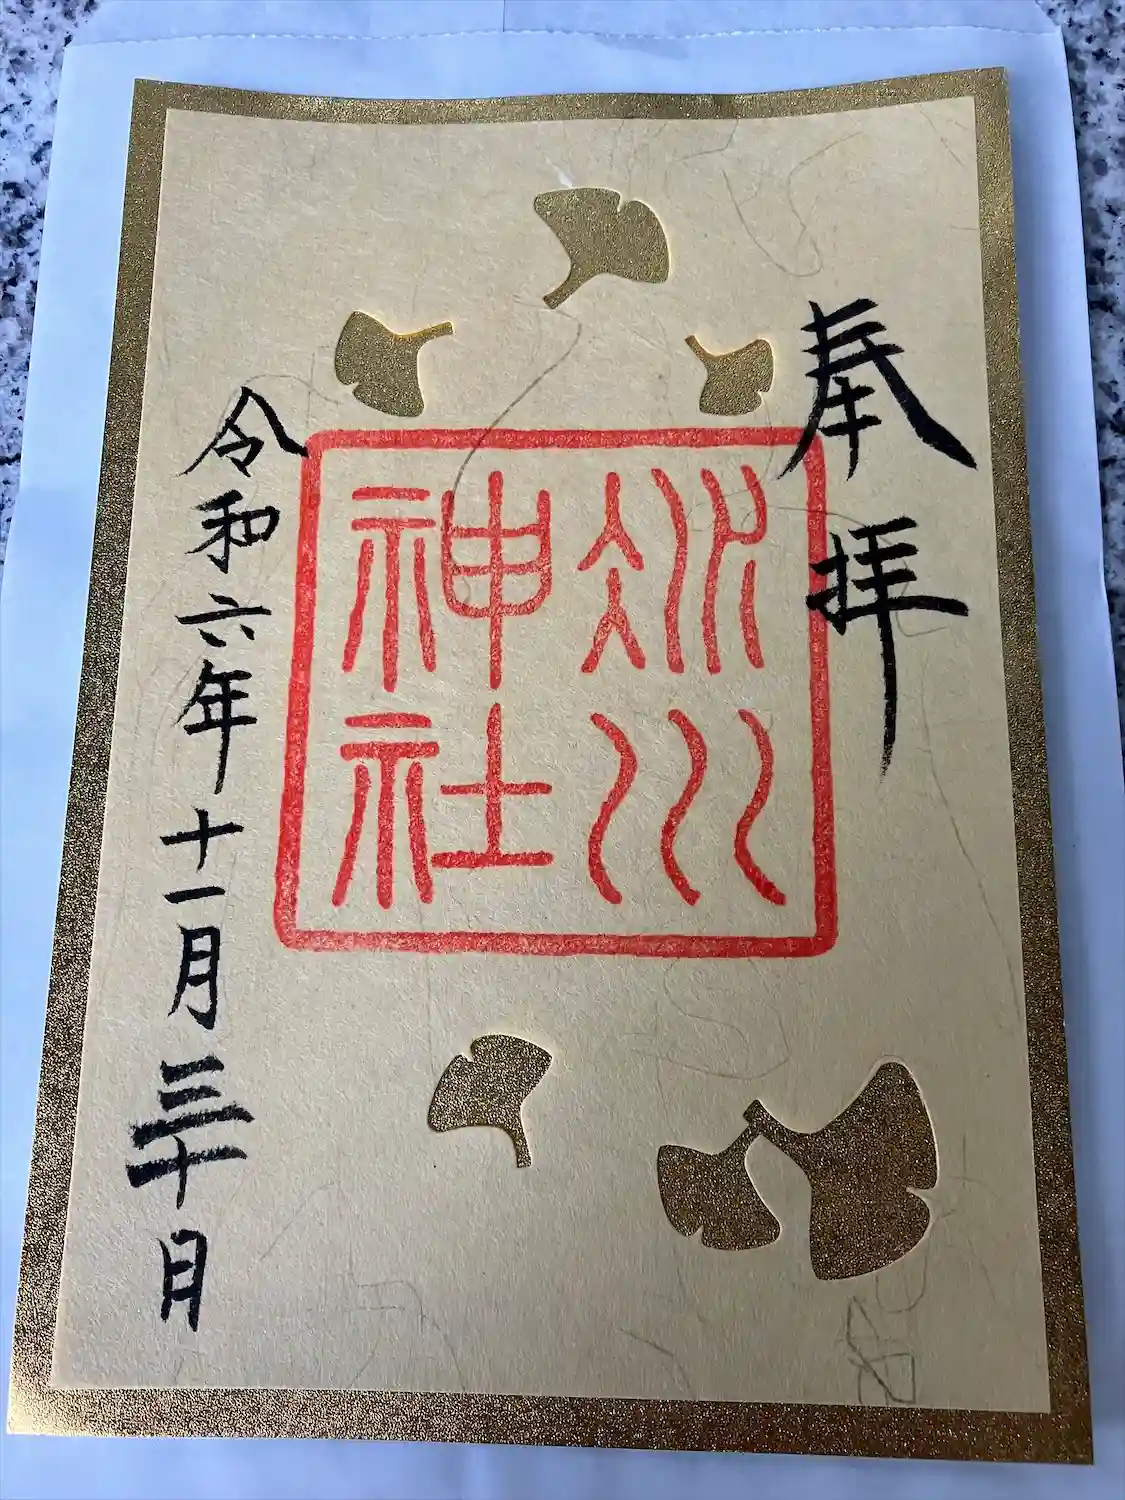 奉拝
氷川
神社
令和六年十一月三十日